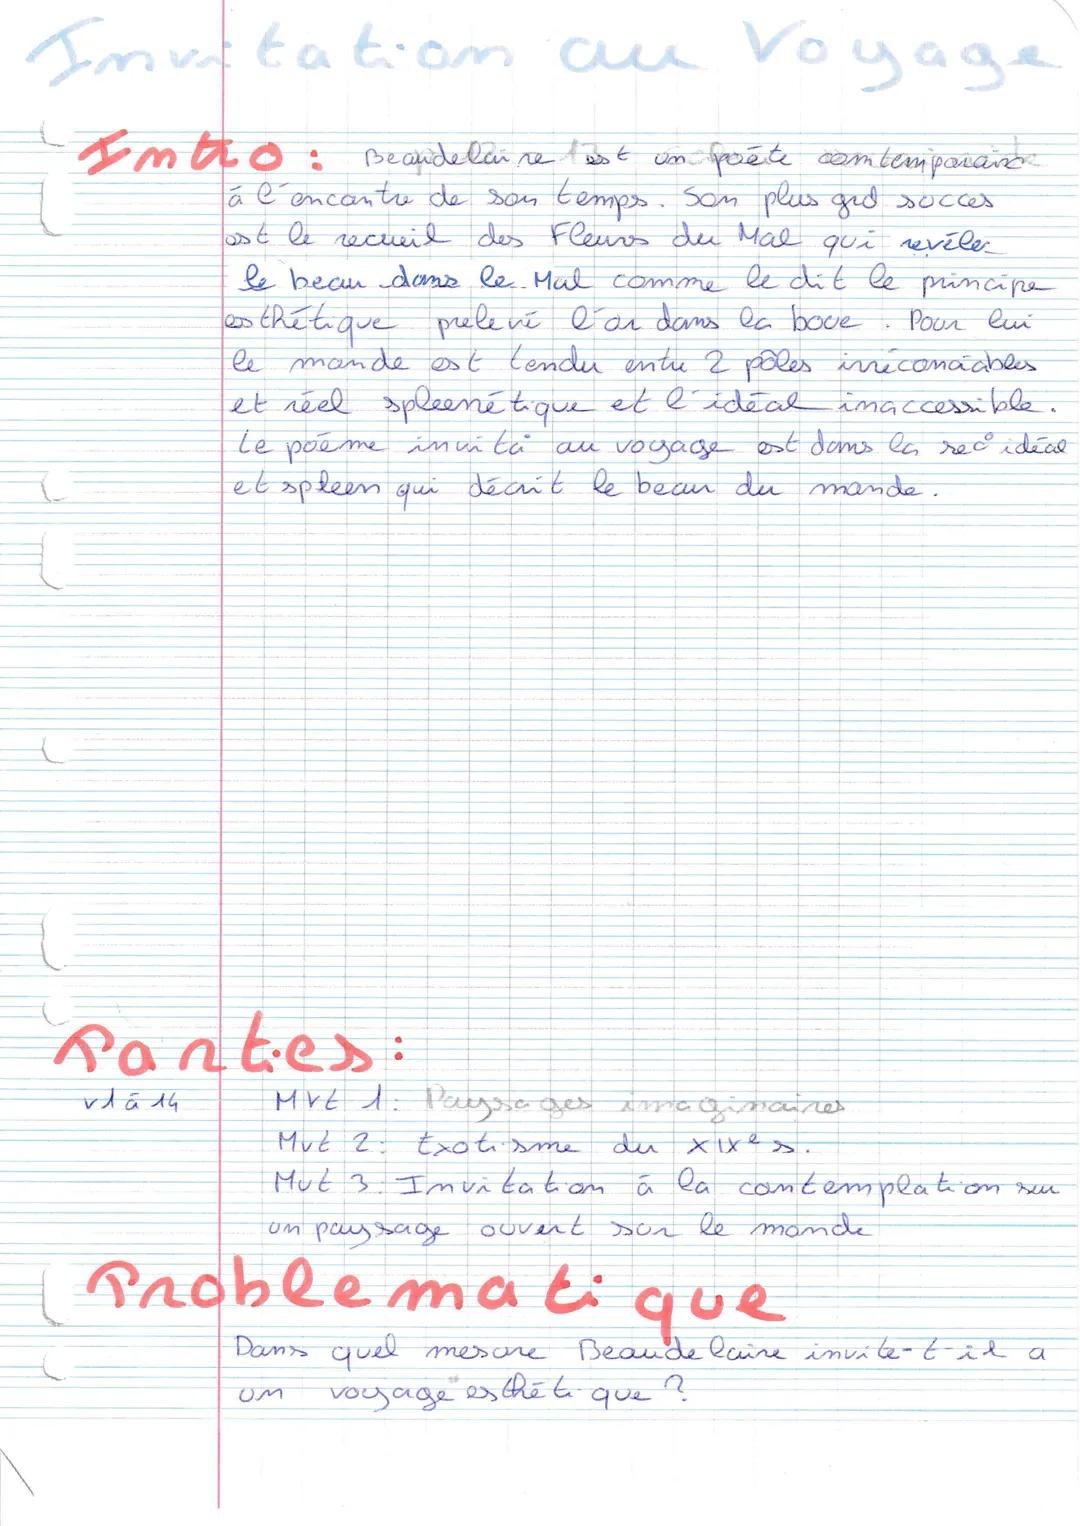 Invitation au Voyage
Intro : Beaudelaire est un poète contemporain
à l'encontre de son temps. Son plus grd succes
est le recueil des Fleurs du Mal qui revéler
le beau dans le Mal comme le dit le principe
esthétique prelevé l'or dans la boue. Pour lui
le monde est tendu entre 2 pôles irréconciables
et réel spleenétique et l'idéal inaccessible.
Le poème invit° au voyage est dans la sec° idéal
et spleen qui décrit le beau du monde.
Parties :
v1 à 14 Mvt 1: Paysages imaginaires
Mvt 2: Exotisme du XIXe s.
Mvt 3: Invitation à la contemplation sur
un paysage ouvert sur le monde
Problematique
Dans quel mesure Beaudelaire invite-t-il a
un voyage esthétique ?